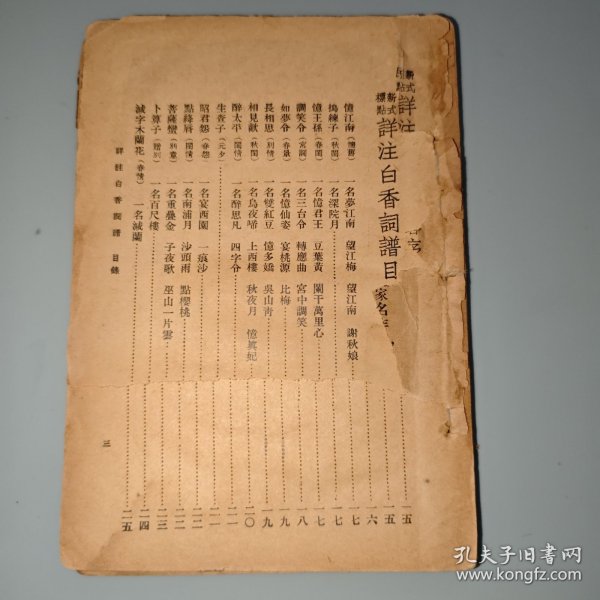 新式
標點 詳注
新式
標點 詳注白香詞譜目
家名
憶江南(懷舊) 一名夢江南 望江梅 望江南 謝秋娘
搗練子(秋閨) 一名深院月
憶王孫(春閨) 一名憶君王 豆葉黃 闌干萬里心
調笑令(宮詞) 一名三台令 轉應曲 宮中調笑
如夢令(春景) 一名憶仙姿 宴桃源 比梅
長相思(別情) 一名雙紅豆 憶多嬌 吳山青
相見歡(秋閨) 一名烏夜啼 上西樓 秋夜月 憶真妃
醉太平(閨情) 一名醉思凡 四字令
生查子(元夕)
昭君怨(春怨) 一名宴西園 一痕沙
點絳唇(閨情) 一名南浦月 沙頭雨 點櫻桃
菩薩蠻 一名重疊金 子夜歌 巫山一片雲
卜算子(贈別) 一名百尺樓
減字木蘭花(春情) 一名減蘭
五
五
六
一七
一七
一七
一八
一九
一九
二〇
二一
二一
二二
二二
二三
二四
二五
詳註白香詞譜 目錄
三
孔夫子旧书网
www.kongfz.com